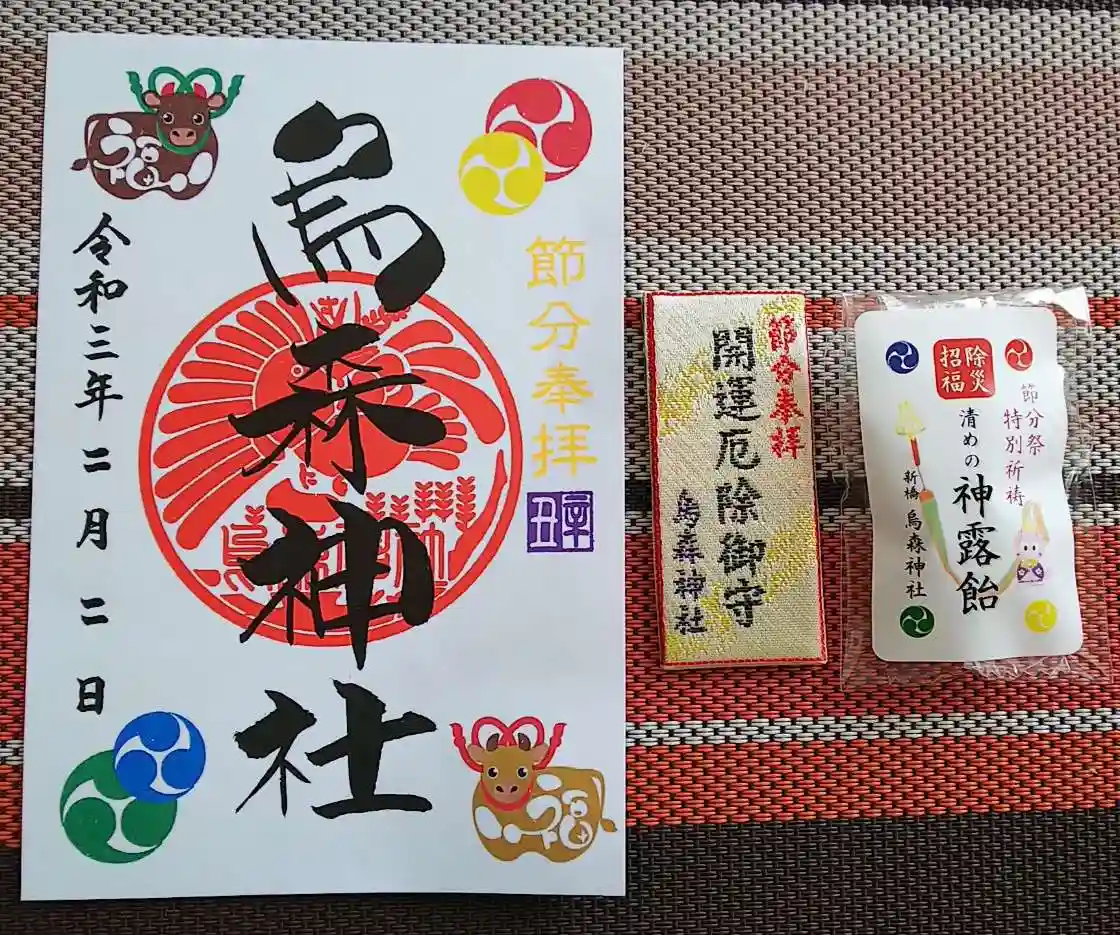 節分奉拝
辛丑
烏森神社
令和三年二月二日
福
福
節分奉拝
開運厄除御守
烏森神社
除災
招福
節分祭
特別祈祷
清めの
神露飴
新橋 烏森神社